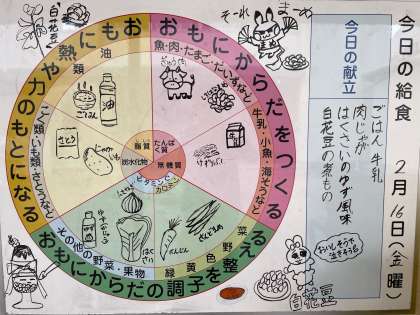 今日の給食
2月16日(金曜)
今日の献立
ごはん 牛乳
肉じゃが
はくさいのゆず風味
白花豆の煮もの
おもにからだをつくる
魚・肉・たまご・だいずなど
牛乳・小魚・海そうなど
おもにからだの調子を整える
緑黄色野菜
その他の野菜・果物
おもに熱や力のもとになる
油類
こく類・いも類・さとうなど
脂質
たんぱく質
炭水化物
無機質
ビタミンC
カロテン
ごはん
さとう
ぎゅう肉
はくさい
にんじん
さやいんげん
そーれ
まーめ
白花豆
おいしそうで
白花豆